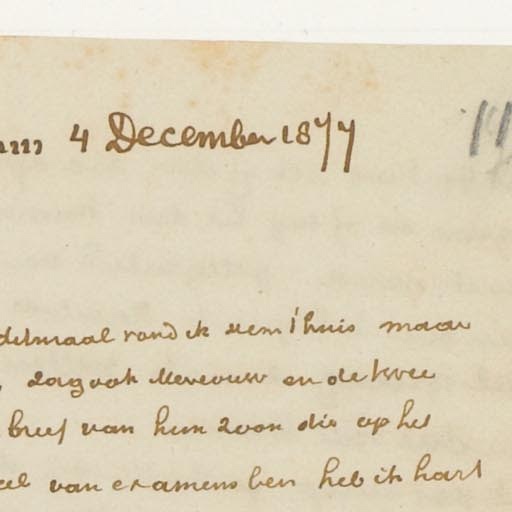 am 4 December 1877
delmaal vond ik hem t'huis maar
zag ook Mevrouw en de twee
brief van hun zoon die op het
van examens ben heb ik hart